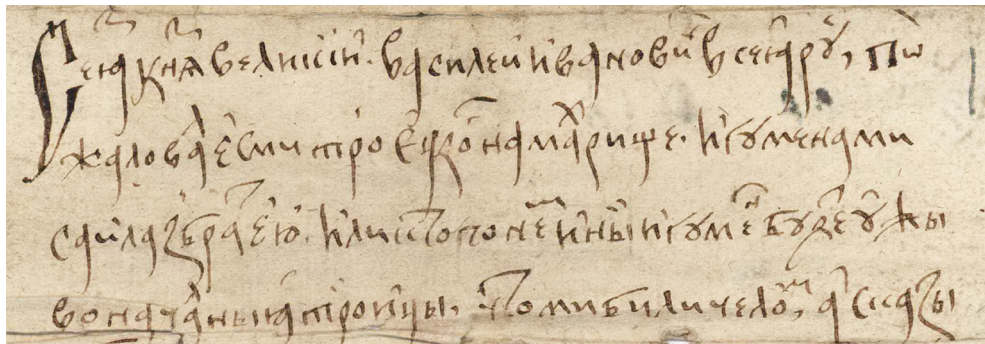 Се ꙗз кнꙗз великіи василеи иванович всеꙗ руси, по
жаловал есми троецкой манастырь игумена ми
саила з братьею или хто по нем иныи игумен будет у жы
воначалныꙗ троицы, что ми били челом, а сказы